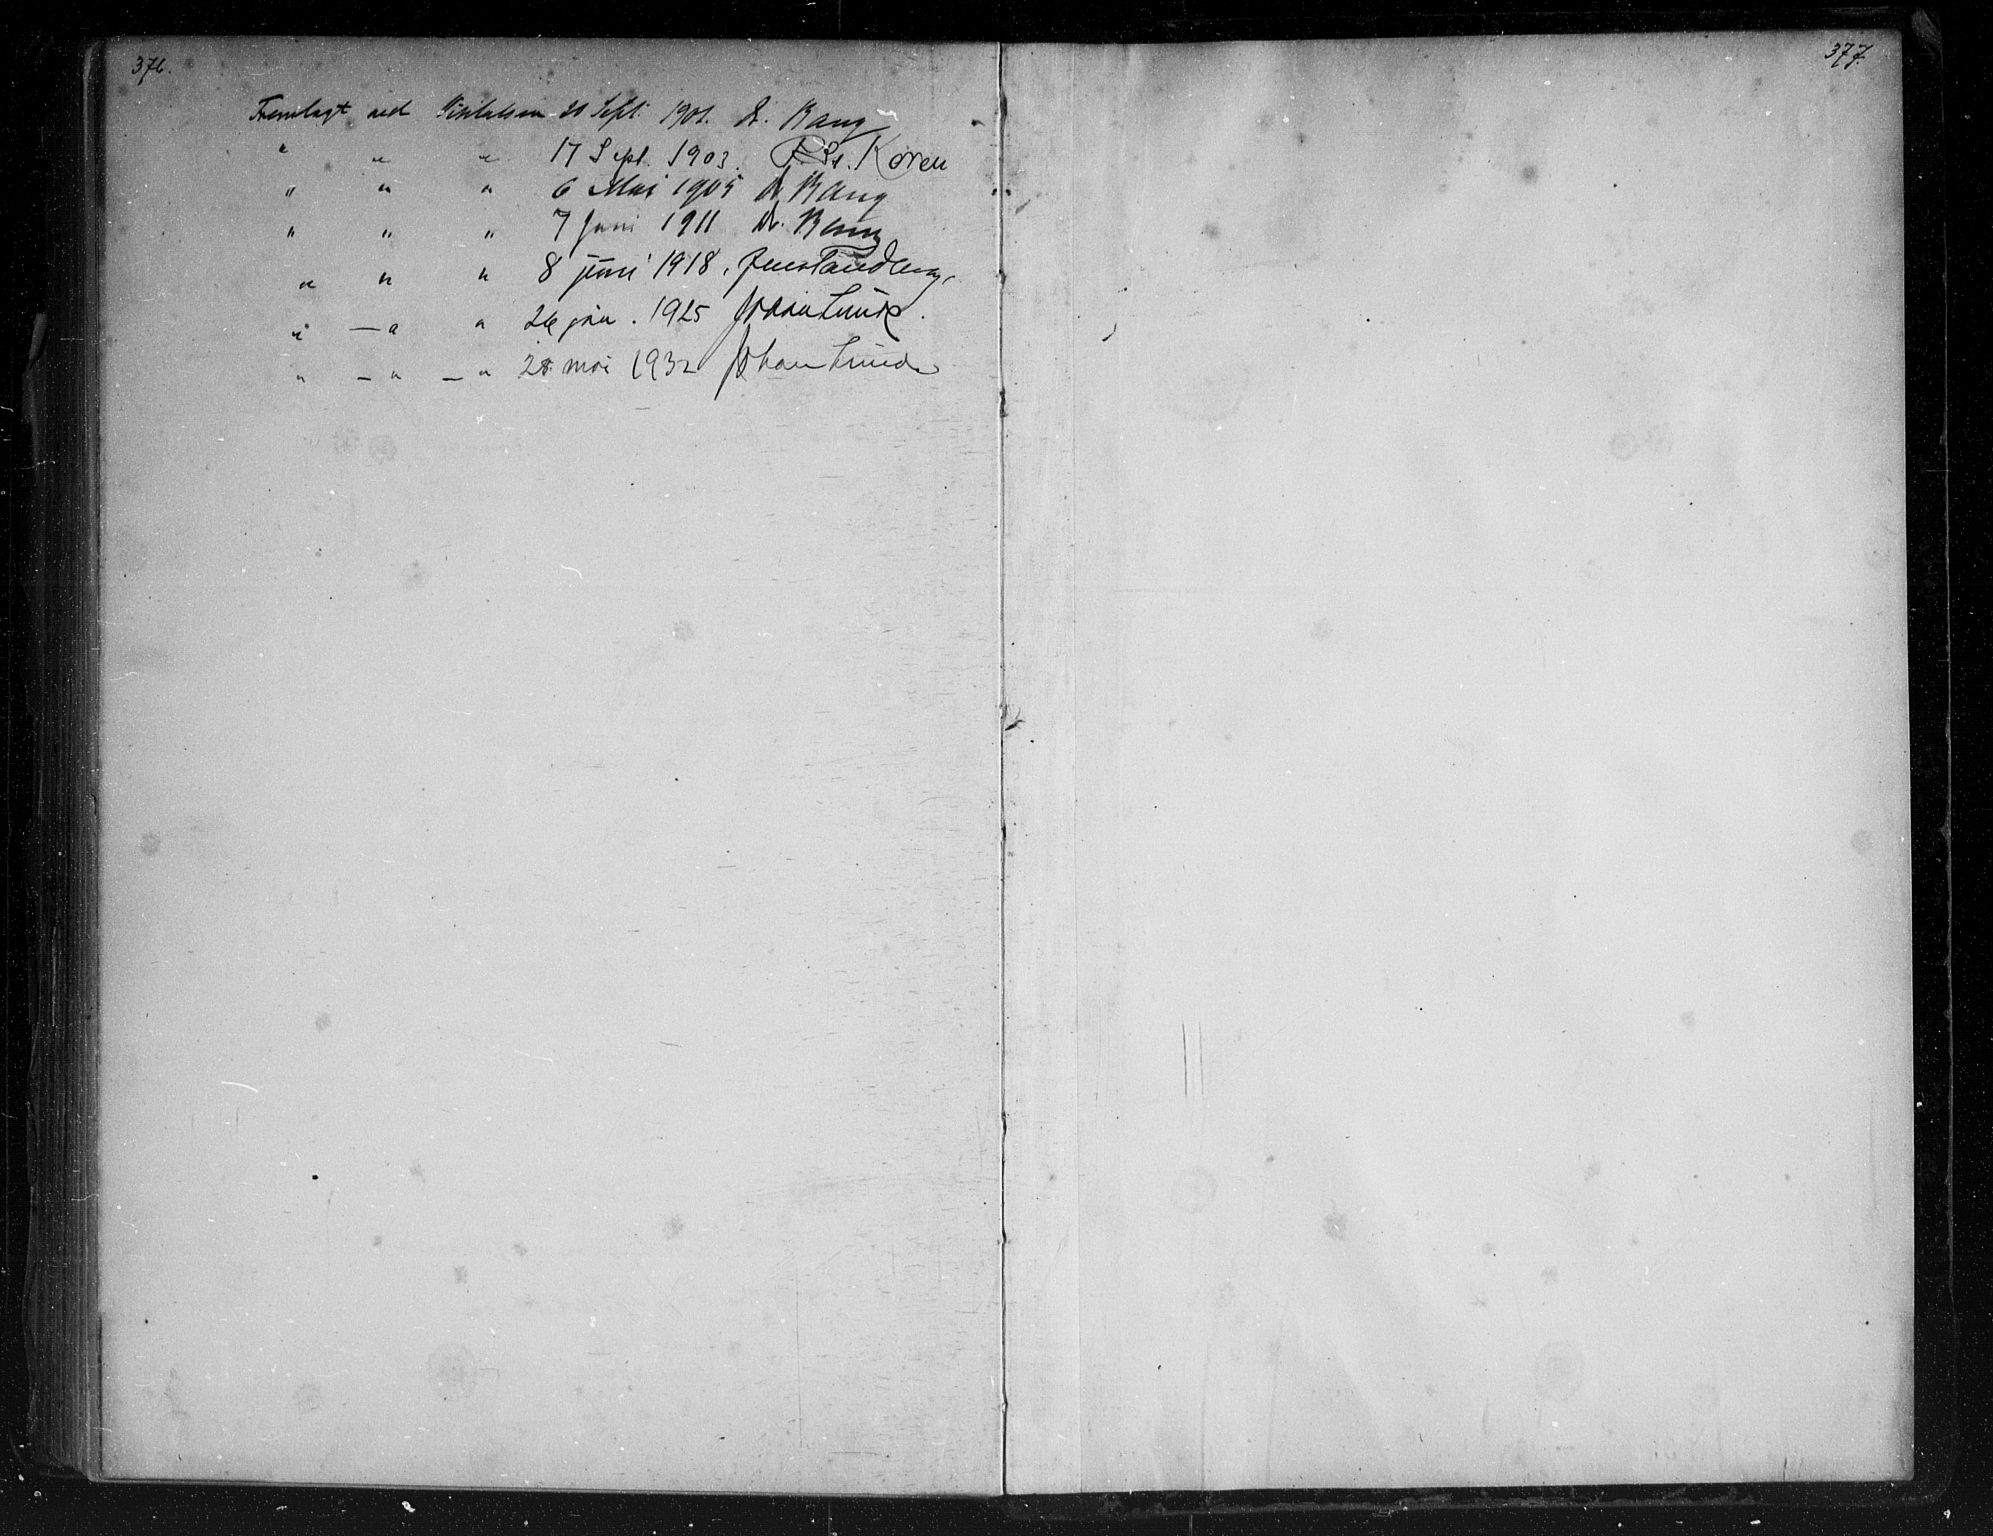 376.
377.
Fremlagt ved Visitatsen 20 Sept. 1901. A. Bang
" " " 17 Sept. 1903. Koren
" " " 6 Mai 1905 A. Bang
" " " 7 Juni 1911 A. Bang
" " " 8 juni 1918, Jens Tandberg.
" — " " 26 jan. 1925 Johan Lunde.
" — " — " 28. mai 1932 Johan Lunde